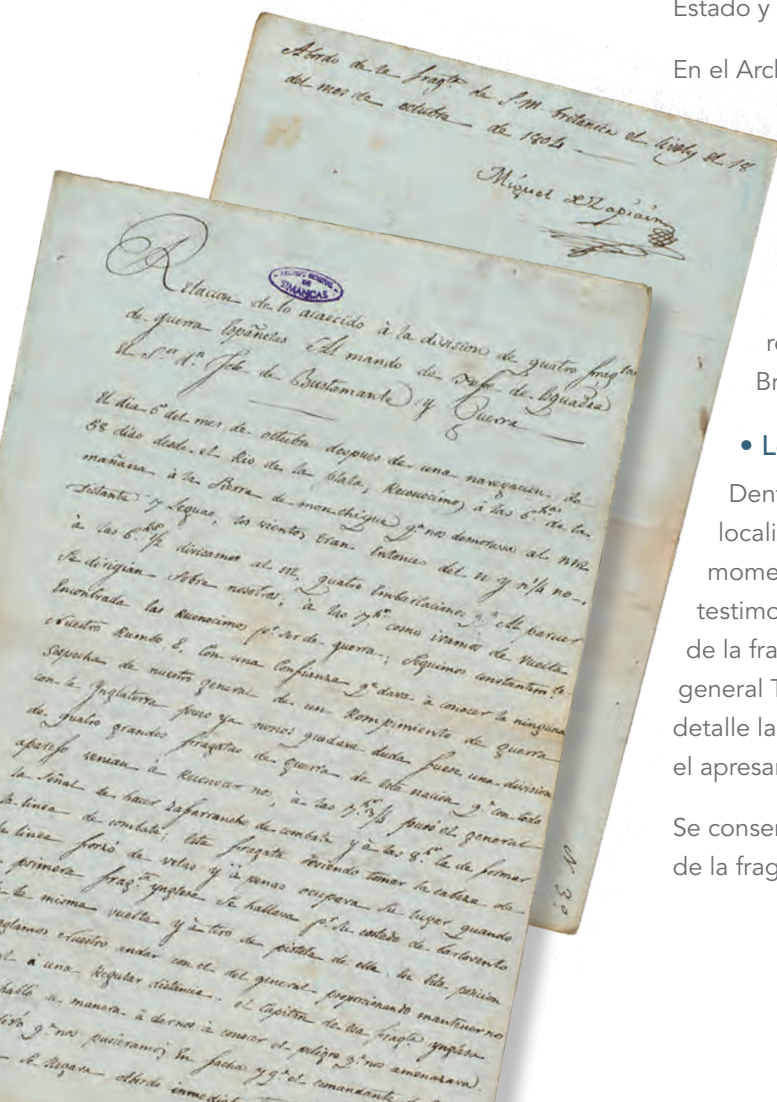 Estado y
En el Arch
Abordo de la fragta de S. M. britanica el lively el 18
del mes de octubre de 1804
Miguel de Zapiain
ARCHIVO GENERAL
DE
SIMANCAS
Relacion de lo acaecido à la division de quatro fragtas
de guerra Españolas Al mando de Jefe de Esquadra
el Sor Dn Jph de Bustamante y Guerra
El dia 5 del mes de octubre despues de una navegacion de
58 dias desde el Rio de la plata, Reconocimos à las 6 has de la
mañana à la Sierra de monchique qe nos demorava al NNE
distante 7 leguas, los vientos eran entonces del n y n¼no.
à las 6 hs ½ divisamos al ne, quatro Embarcaciones qe Al parecer
Se dirigian sobre nosotros, à las 7 hs como ivamos de vuelta
Encontrada las Reconocimos pr ser de guerra; Seguimos constantemte
Nuestro Rumbo E, con una Confianza qe dava à conocer la ninguna
sospecha de nuestro general de un Rompimiento de guerra
con la Ynglaterra pues ya no nos quedava duda fuese una division
de quatro grandes fragatas de guerra de esta nacion qe con todo
aparejo venian à Reconocernos, à las 7 hs ¾ puso el general
la Señal de hacer zafarrancho de combate y à las 8 hs la de formar
la linea de combate; esta fragata deviendo tomar la cabeza de
la linea forzó de velas y à penas ocupava Su lugar quando
primera fragta ynglesa Se hallava pr Su costado de barlovento
la misma vuelta y à tiro de pistola de ella. En esta posicion
Nuestro andar con el del general proporcionando mantenernos
à una Regular distancia. el Capitan de la fragta ynglesa
habló de manera à dernos à conocer el peligro qe nos amenazava
qe nos pusieramos En facha y qe el comandante
llegara abordo inmediat
N. 3.º
re
Br
• L
Dent
locali
mome
testimo
de la fra
general T
detalle la
el apresar
Se conser
de la frag